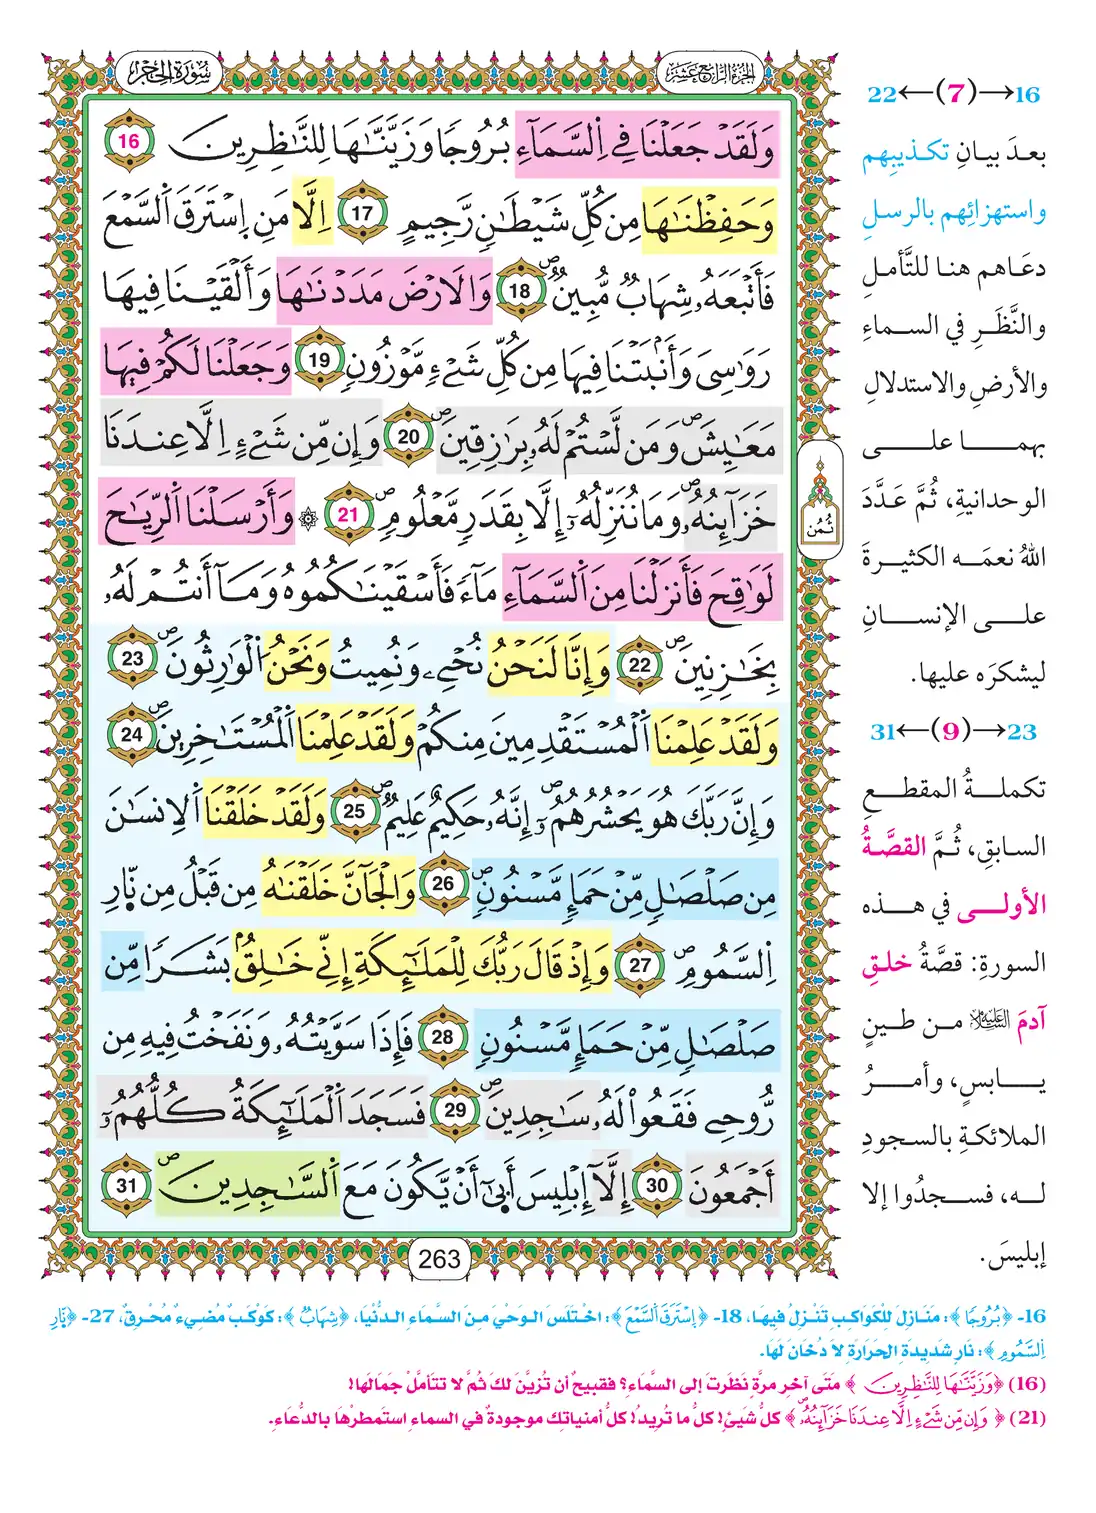 سُورَةُ الحِجْرِ
الجُزْءُ الرَّابِعَ عَشَرَ
وَلَقَدْ جَعَلْنَا فِي اِ۬لسَّمَآءِ بُرُوجاٗ وَزَيَّنَّٰهَا لِلنَّٰظِرِينَ 16
وَحَفِظْنَٰهَا مِن كُلِّ شَيْطَٰنٖ رَّجِيمٍ 17 اِلَّا مَنِ اِ۪سْتَرَقَ اَ۬لسَّمْعَ
فَأَتْبَعَهُۥ شِهَابٞ مُّبِينٞۖ 18 وَالَارْضَ مَدَدْنَٰهَا وَأَلْقَيْنَا فِيهَا
رَوَٰسِيَ وَأَنۢبَتْنَا فِيهَا مِن كُلِّ شَےْءٖ مَّوْزُونٖ 19 وَجَعَلْنَا لَكُمْ فِيهَا
مَعَٰيِشَۖ وَمَن لَّسْتُمْ لَهُۥ بِرَٰزِقِينَۖ 20 وَإِن مِّن شَےْءٍ اِلَّا عِندَنَا
خَزَآئِنُهُۥۖ وَمَا نُنَزِّلُهُۥٓ إِلَّا بِقَدَرٖ مَّعْلُومٖۖ 21 ۞ وَأَرْسَلْنَا اَ۬لرِّيَٰحَ
لَوَٰقِحَ فَأَنزَلْنَا مِنَ اَ۬لسَّمَآءِ مَآءٗ فَأَسْقَيْنَٰكُمُوهُ وَمَآ أَنتُمْ لَهُۥ
بِخَٰزِنِينَۖ 22 وَإِنَّا لَنَحْنُ نُحْيِۦ وَنُمِيتُ وَنَحْنُ اُ۬لْوَٰرِثُونَۖ 23
وَلَقَدْ عَلِمْنَا اَ۬لْمُسْتَقْدِمِينَ مِنكُمْ وَلَقَدْ عَلِمْنَا اَ۬لْمُسْتَٰخِرِينَۖ 24
وَإِنَّ رَبَّكَ هُوَ يَحْشُرُهُمُۥٓۖ إِنَّهُۥ حَكِيمٌ عَلِيمٞۖ 25 وَلَقَدْ خَلَقْنَا اَ۬لِانسَٰنَ
مِن صَلْصَٰلٖ مِّنْ حَمَإٖ مَّسْنُونٖۖ 26 وَالْجَآنَّ خَلَقْنَٰهُ مِن قَبْلُ مِن نّ۪ارِ
اِ۬لسَّمُومِۖ 27 وَإِذْ قَالَ رَبُّكَ لِلْمَلَٰٓئِكَةِ إِنِّے خَٰلِقُۢ بَشَراٗ مِّن
صَلْصَٰلٖ مِّنْ حَمَإٖ مَّسْنُونٖ 28 فَإِذَا سَوَّيْتُهُۥ وَنَفَخْتُ فِيهِ مِن
رُّوحِے فَقَعُواْ لَهُۥ سَٰجِدِينَۖ 29 فَسَجَدَ اَ۬لْمَلَٰٓئِكَةُ كُلُّهُمُۥٓ
أَجْمَعُونَ 30 إِلَّآ إِبْلِيسَ أَبَىٰٓ أَنْ يَّكُونَ مَعَ اَ۬لسَّٰجِدِينَۖ 31
ثُمُن
263
16→(7)←22
بعدَ بيانِ تكذيبِهم
واستهزائِهم بالرسلِ
دعَاهم هنا للتَّأملِ
والنَّظَرِ في السماءِ
والأرضِ والاستدلالِ
بهما على
الوحدانيةِ، ثُمَّ عَدَّدَ
اللهُ نعمَه الكثيرةَ
على الإنسانِ
ليشكرَه عليها.
23→(9)←31
تكملةُ المقطعِ
السابقِ، ثُمَّ القصَّةُ
الأولى في هذه
السورةِ: قصَّةُ خلقِ
آدمَ عليه السلام من طينٍ
يابسٍ، وأمرُ
الملائكةِ بالسجودِ
له، فسجدُوا إلا
إبليسَ.
16- ﴿بُرُوجاٗ﴾: مَنَازِلَ لِلْكَوَاكِبِ تَنْزِلُ فيِهَا، 18- ﴿اِ۪سْتَرَقَ اَ۬لسَّمْعَ﴾: اخْتَلَسَ الوَحْيَ مِنَ السَّمَاءِ الدُّنْيَا، ﴿شِهَابٞ﴾: كَوْكَبٌ مُضِيءٌ مُحْرِقٌ، 27- ﴿نّ۪ارِ
اِ۬لسَّمُومِ﴾: نَارٍ شَدِيدَةِ الحَرَارَةِ لاَ دُخَانَ لَهَا.
(16) ﴿وَزَيَّنَّٰهَا لِلنَّٰظِرِينَ﴾ مَتَى آخر مرَّةٍ نَظَرتَ إلى السَّمَاءِ؟ فقبيحٌ أن تُزيَّنَ لكَ ثُمَّ لا تتأمَّلُ جَمَالَهَا!
(21) ﴿وَإِن مِّن شَےْءٍ اِلَّا عِندَنَا خَزَآئِنُهُۥۖ﴾ كلُّ شَيئٍ! كلُّ ما تُريدُ! كلُّ أمنياتِك موجودةٌ في السماءِ استَمطرْهَا بالدُّعَاءِ.